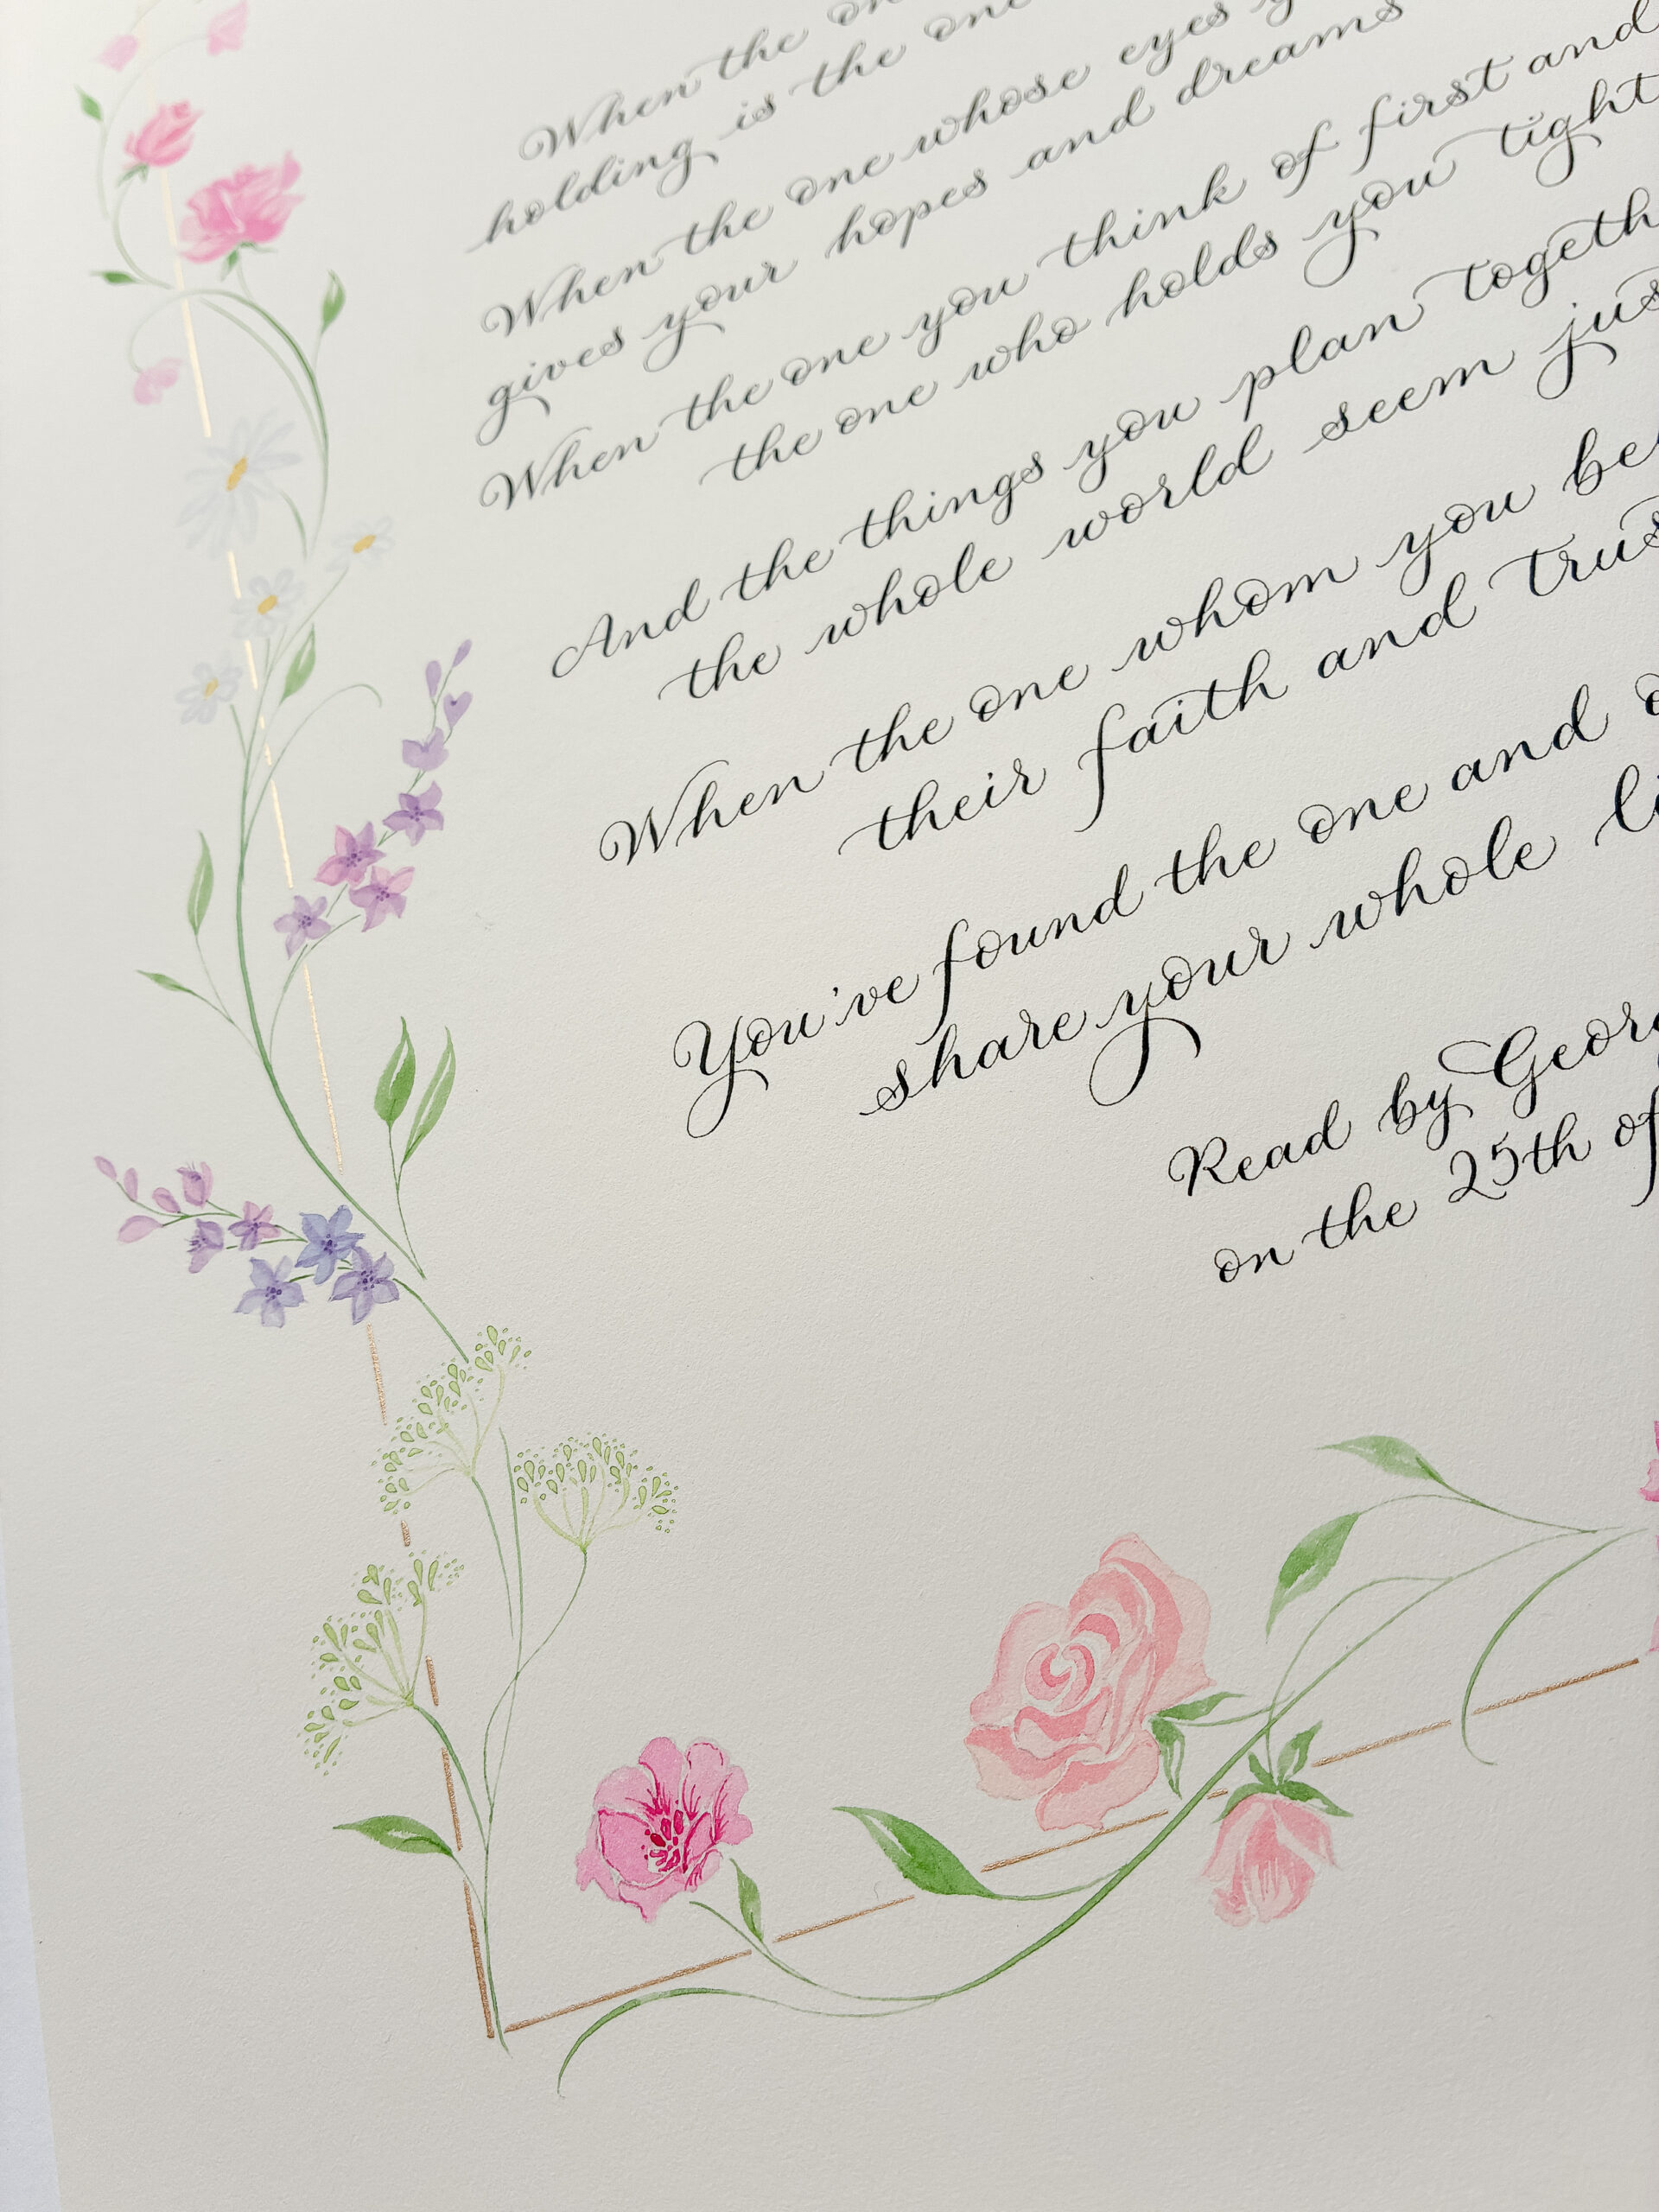 When the
holding is the one
When the one whose eyes
gives your hopes and dreams
When the one you think of first and
the one who holds you tight
And the things you plan
the whole world seem
When the one whom you
their faith and
You've found the one and
share your whole
Read by
on the 25th of